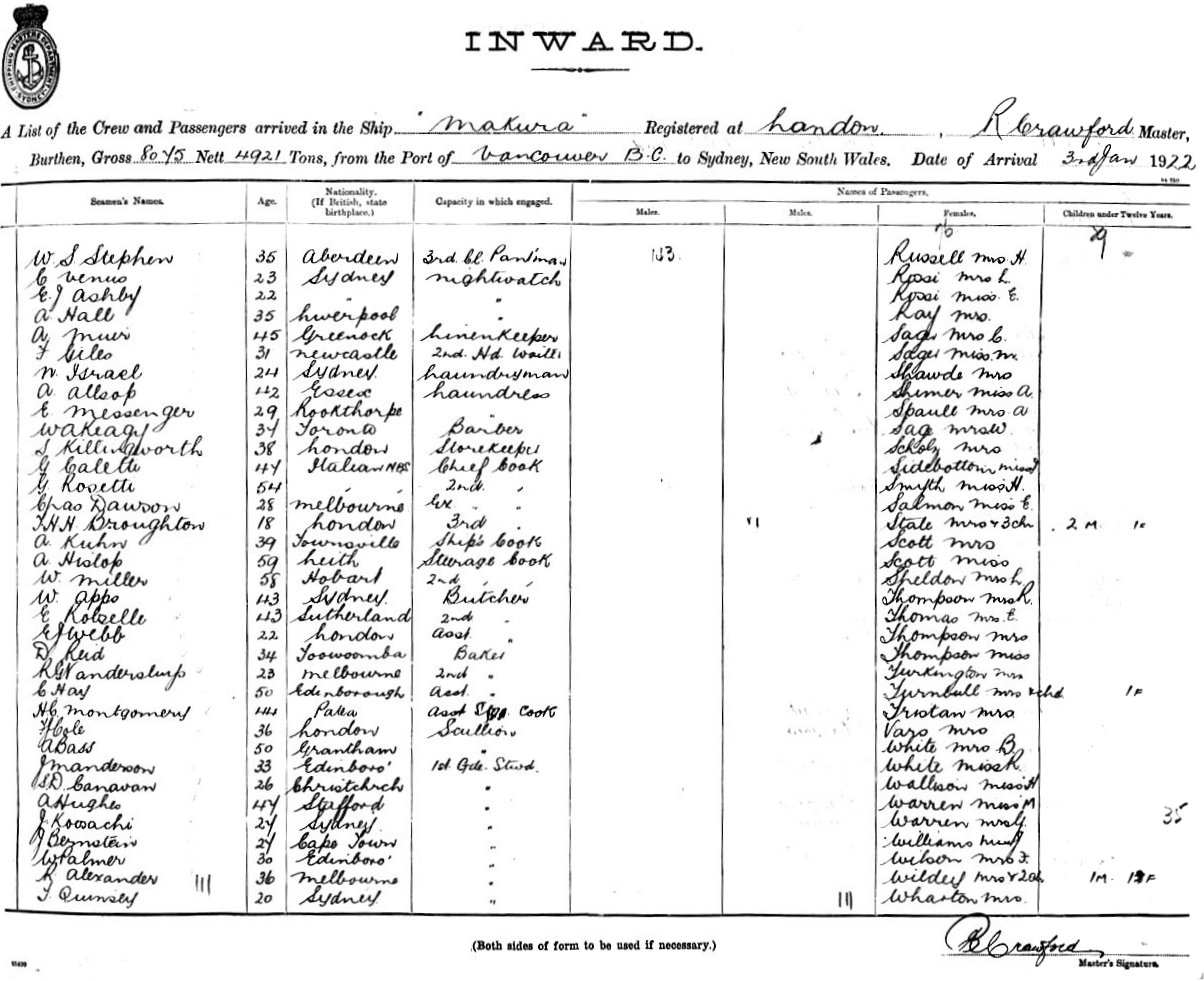 SHIPPING MASTERS DEPARTMENT SYDNEY
INWARD.
A List of the Crew and Passengers arrived in the Ship "Makura" Registered at London. , R Crawford Master,
Burthen, Gross 8075 Nett 4921 Tons, from the Port of Vancouver B.C. to Sydney, New South Wales. Date of Arrival 3rd Jan 1922
Names of Passengers.
Seamen's Names. Age. Nationality. (If British, state birthplace.) Capacity in which engaged. Males. Males. Females. Children under Twelve Years.
W. S Stephen 35 Aberdeen 3rd. Cl. Pantman Russell Mrs H.
C Venus 23 Sydney Nightwatch Rossi Mrs L.
E. J Ashby 22 " " Rossi Miss. E.
A. Hall 35 Liverpool " Ray Mrs.
A. Muir 45 Greenock Linenkeeper Sager Mrs C.
F Giles 31 Newcastle 2nd. Hd. Waiter Sager Miss M.
N. Israel 24 Sydney. Laundryman Shawde Mrs
A. Allsop 42 Essex Laundress Shimer Miss A.
E. Messenger 29 Rookthorpe Spaull Mrs. A
37 Toronto Barber Sage Mrs W.
S Killingworth 38 London Storekeeper Scholz Mrs
G Caletti 47 Italian Chief Cook Sidebottom Miss
G. Rosetti 54 " " 2nd. " Smyth Miss H.
Chas Dawson 28 Melbourne Ex " " Salmon Miss E.
T.H.H. Broughton 18 London 3rd " State Mrs & 3 ch 2 M. 1 F
A. Kuhn 39 Townsville Ship's Cook Scott Mrs
A. Hislop 59 Leith Steerage Cook Scott Miss
W. Miller 58 Hobart 2nd " " Sheldon Mrs L.
W. Apps 43 Sydney. Butcher Thompson Mrs R.
E 43 Sutherland 2nd " Thomas Mrs. E.
E J Webb 22 London Asst. " Thompson Mrs
D. Reid 34 Toowoomba Baker Thompson Miss
23 Melbourne 2nd " Turkington Mrs
C Hay 50 Edinborough Asst. " Turnbull Mrs & chd 1 F
H. C. Montgomery 44 Patea Asst Cook Tristan Mrs.
F Cole 36 London Scullion Vars Mrs
A Bass 50 Grantham " White Mrs B.
J Manderson 33 Edinboro' 1st. Gde. Stwd. White Miss R.
S. D. Canavan 26 Christchrch " Wallison Miss H
A Hughes 47 Stafford " Warren Miss M
J. Kowachi 27 Sydney. " Warren Mrs G. 35
J Bernstein 27 Cape Town " Williams
W Palmer 30 Edinboro' " Wilson Mrs F.
R. Alexander 36 Melbourne " Wildey Mrs & 2 ch 1 M. 1 F
T. Quinsey 20 Sydney " Wharton Mrs.
(Both sides of form to be used if necessary.)
R Crawford
Master's Signature.